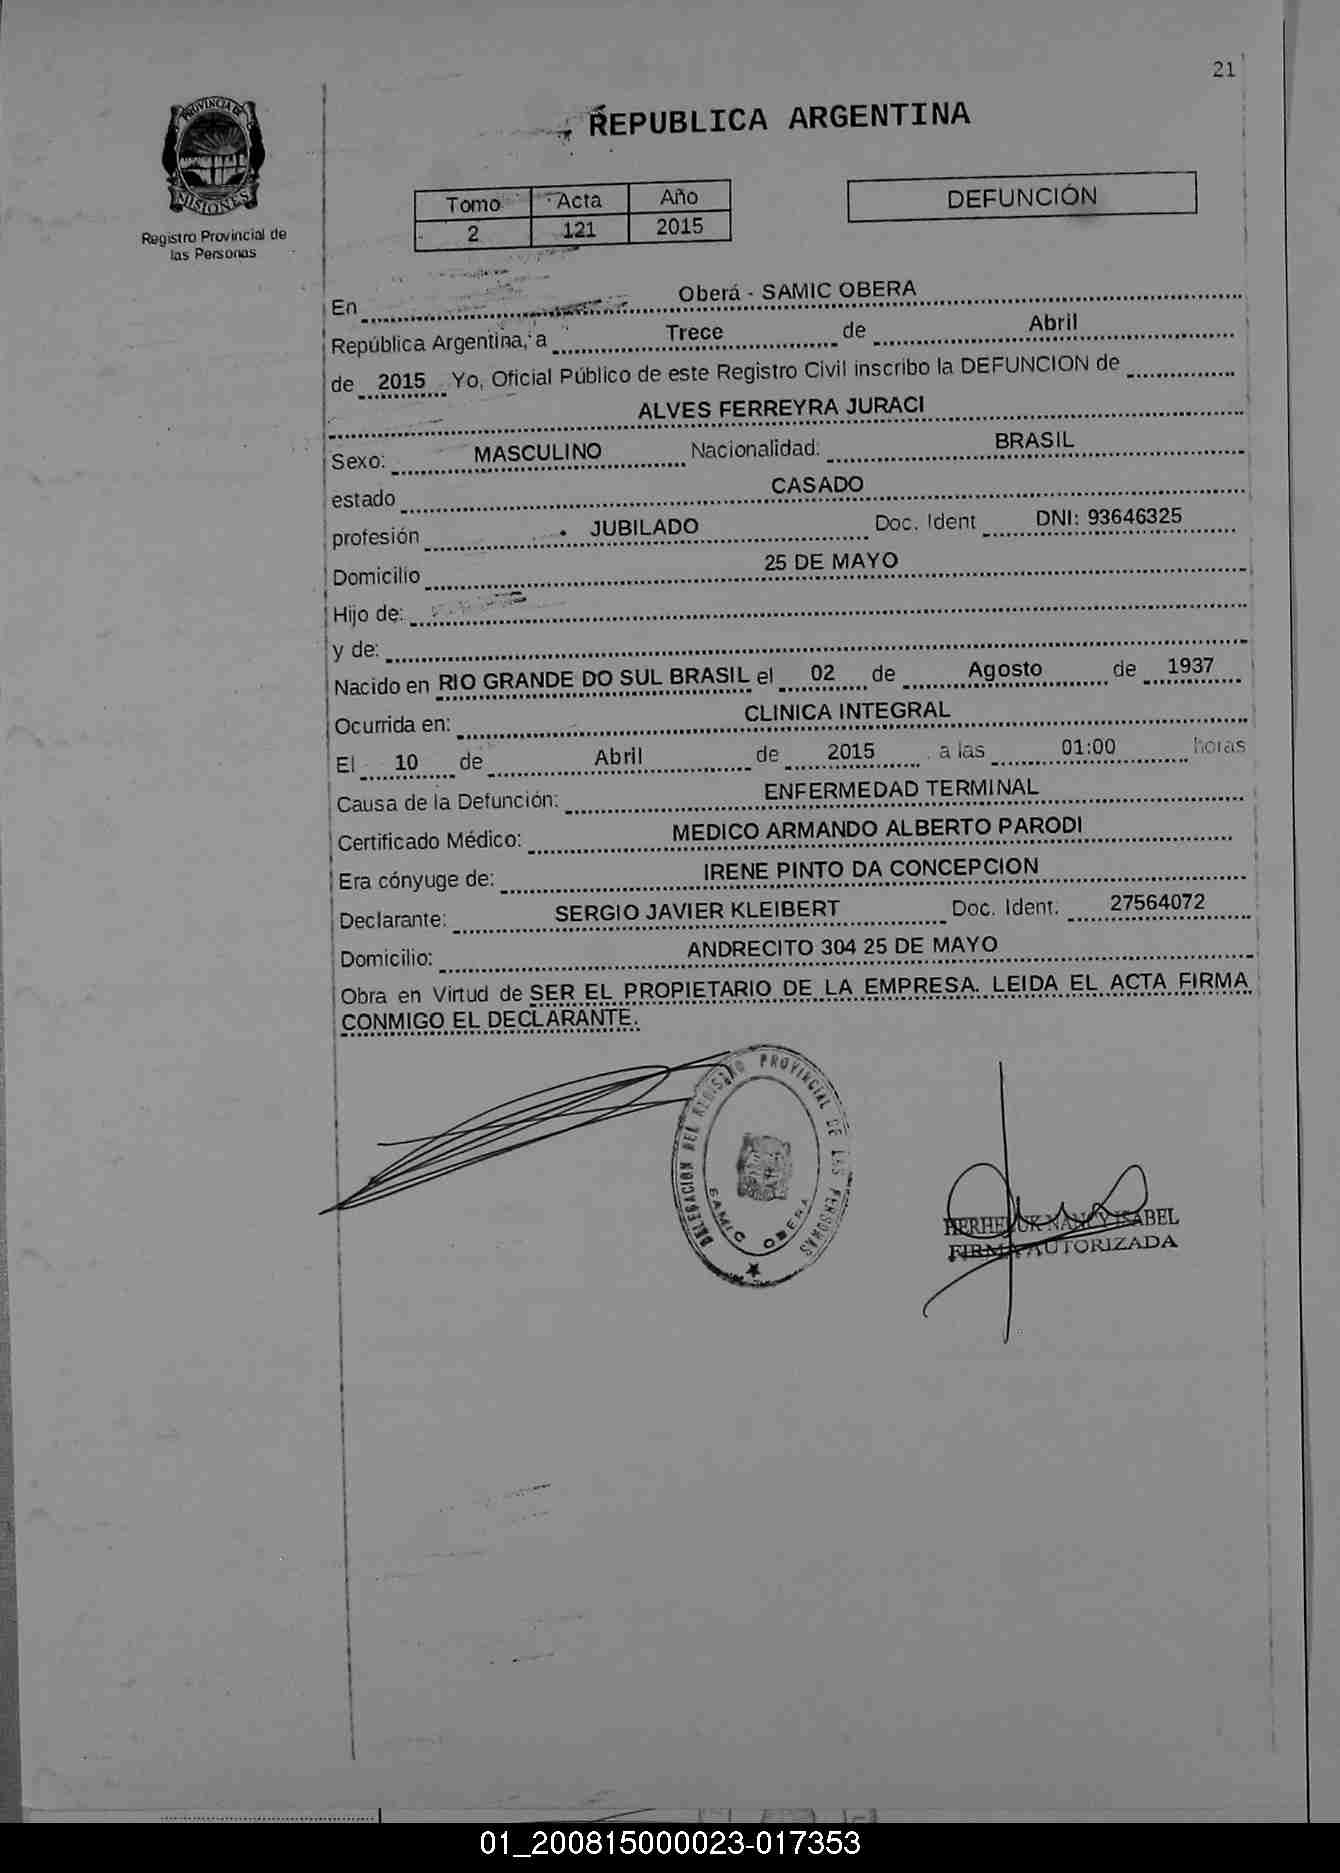 21
PROVINCIA DE
MISIONES
Registro Provincial de
las Personas
REPUBLICA ARGENTINA
Tomo Acta Año
2 121 2015
DEFUNCIÓN
En Oberá - SAMIC OBERA
República Argentina, a Trece de Abril
de 2015 Yo, Oficial Público de este Registro Civil inscribo la DEFUNCION de
ALVES FERREYRA JURACI
Sexo: MASCULINO Nacionalidad: BRASIL
estado CASADO
profesión JUBILADO Doc. Ident DNI: 93646325
Domicilio 25 DE MAYO
Hijo de:
y de:
Nacido en RIO GRANDE DO SUL BRASIL el 02 de Agosto de 1937
Ocurrida en: CLINICA INTEGRAL
El 10 de Abril de 2015 a las 01:00 horas
Causa de la Defunción: ENFERMEDAD TERMINAL
Certificado Médico: MEDICO ARMANDO ALBERTO PARODI
Era cónyuge de: IRENE PINTO DA CONCEPCION
Declarante: SERGIO JAVIER KLEIBERT Doc. Ident. 27564072
Domicilio: ANDRECITO 304 25 DE MAYO
Obra en Virtud de SER EL PROPIETARIO DE LA EMPRESA. LEIDA EL ACTA FIRMA
CONMIGO EL DECLARANTE.
DELEGACION DEL REGISTRO PROVINCIAL DE LAS PERSONAS
SAMIC OBERA
NANCY ISABEL
FIRMA AUTORIZADA
01_200815000023-017353